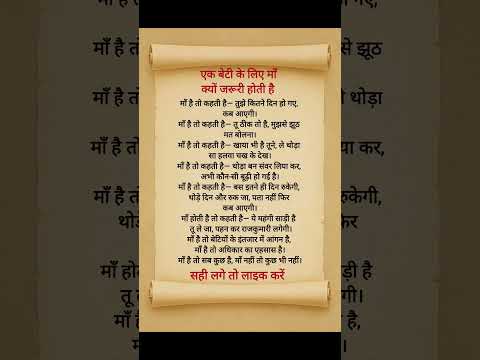 एक बेटी के लिए माँ
क्यों जरूरी होती है
माँ है तो कहती है– तुझे कितने दिन हो गए,
कब आएगी।
माँ है तो कहती है– तू ठीक तो है, मुझसे झूठ
मत बोलना।
माँ है तो कहती है– खाया भी है तूने, ले थोड़ा
सा हलवा चख के देख।
माँ है तो कहती है– थोड़ा बन संवर लिया कर,
अभी कौन-सी बूढ़ी हो गई है।
माँ है तो कहती है– बस इतने ही दिन रुकेगी,
थोड़े दिन और रुक जा, पता नहीं फिर
कब आएगी।
माँ होती है तो कहती है– ये महंगी साड़ी है
तू ले जा, पहन कर राजकुमारी लगेगी।
माँ है तो बेटियों के इंतजार में आंगन है,
माँ है तो अधिकार का एहसास है।
माँ है तो सब कुछ है, माँ नहीं तो कुछ भी नहीं।
सही लगे तो लाइक करें